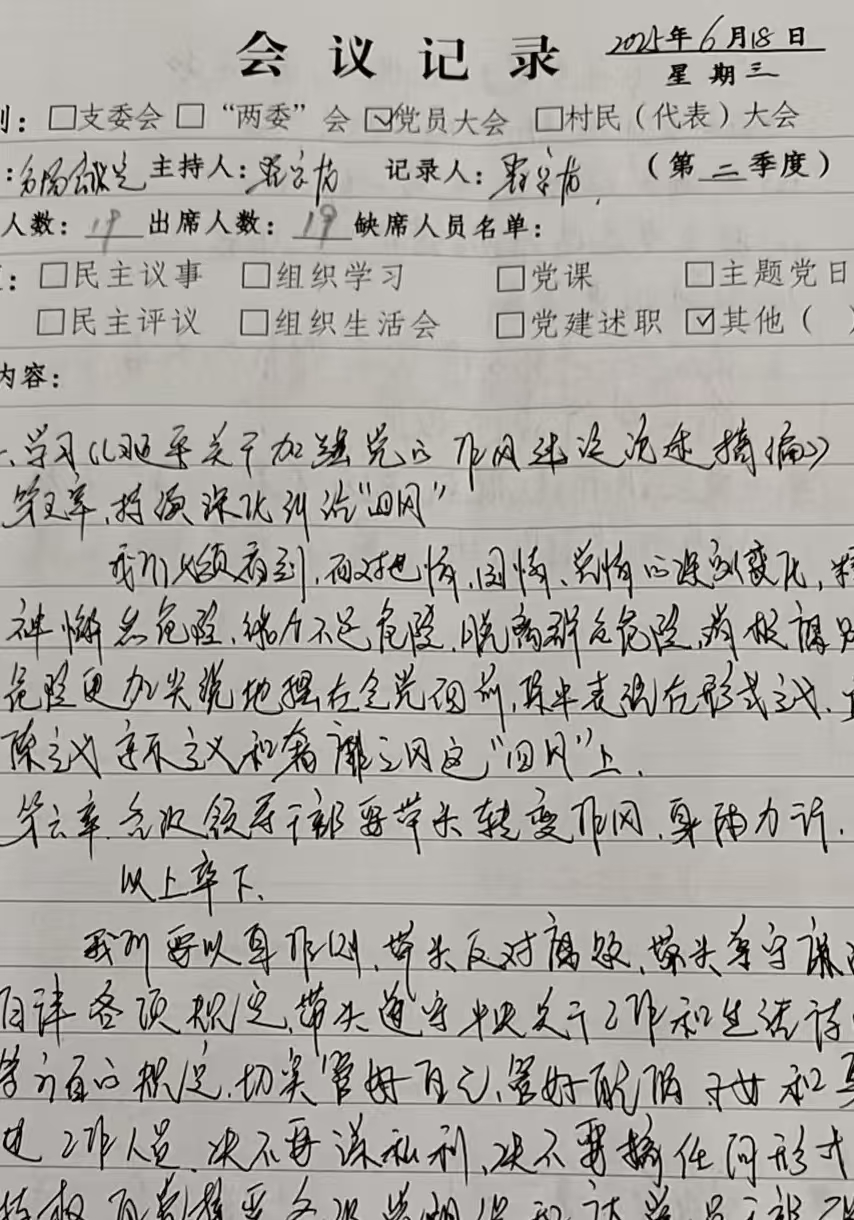 会议记录 2025年6月18日
星期三
别：□支委会 □“两委”会 ☑党员大会 □村民（代表）大会
：主持人： 记录人： （第二季度）
人数：19 出席人数：19 缺席人员名单：
：□民主议事 □组织学习 □党课 □主题党日
□民主评议 □组织生活会 □党建述职 ☑其他（ ）
内容：
一、学习《习近平关于加强党的作风建设论述摘编》
第五章，持续深化纠治“四风”
我们必须看到，面对世情、国情、党情的深刻变化，精
神懈怠危险、能力不足危险、脱离群众危险、消极腐败
危险更加尖锐地摆在全党面前，集中表现在形式主义、官
僚主义、享乐主义和奢靡之风这“四风”上。
第六章 各级领导干部要带头转变作风，身体力行，
以上率下。
我们要以身作则，带头反对腐败，带头遵守廉洁
自律各项规定，带头遵守中央关于工作和生活待遇
等方面的规定，切实管好自己，管好配偶子女和身
边工作人员，决不要谋私利，决不要搞任何形式
特权，自觉接受各级党组织和广大党员干部